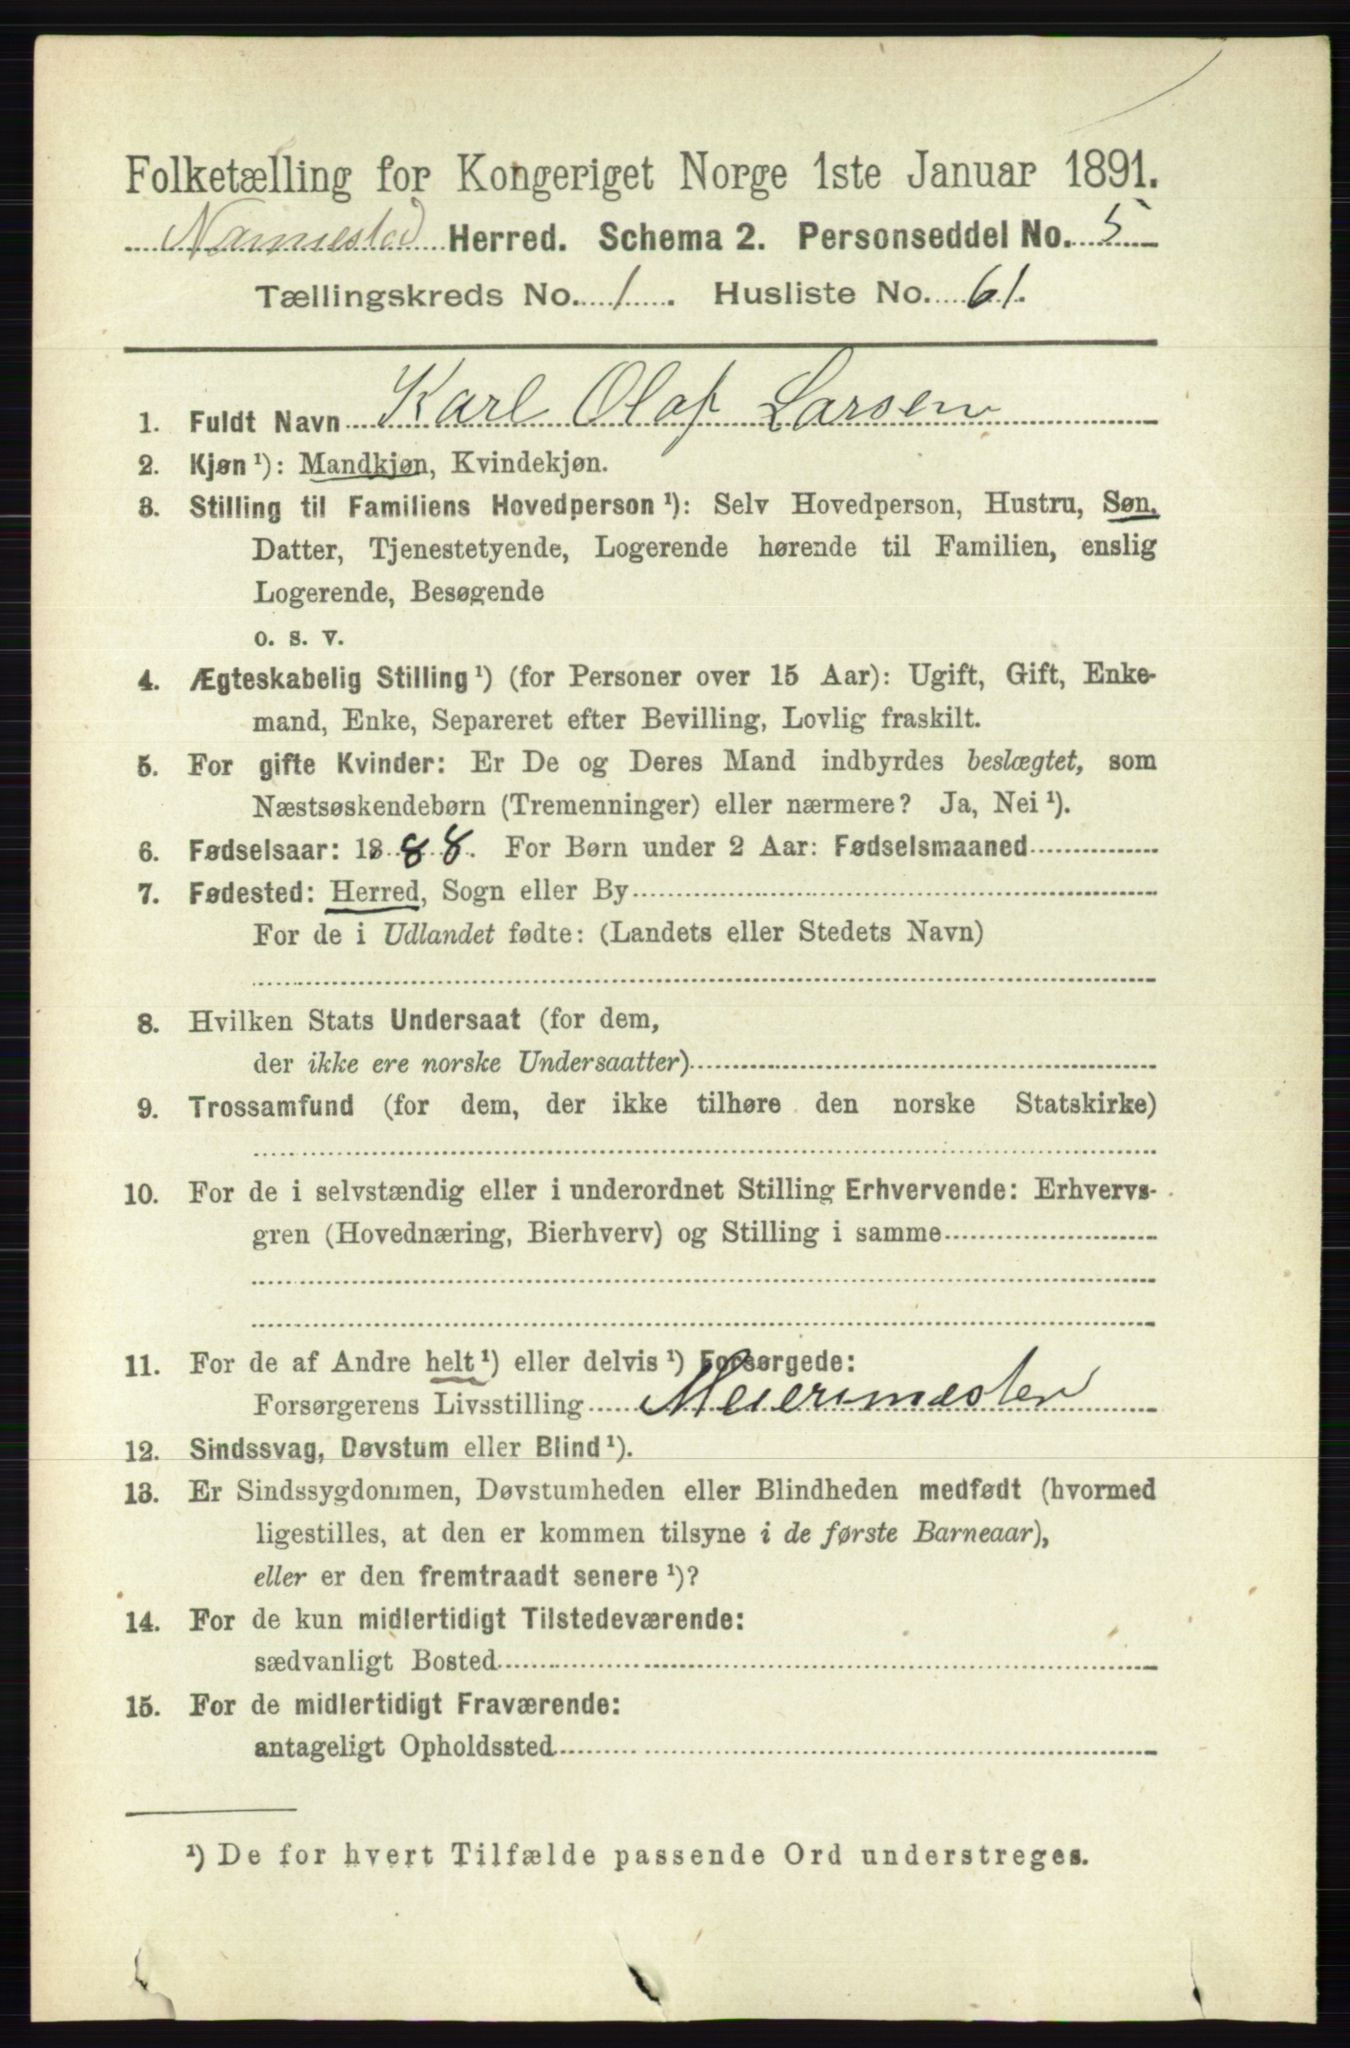 Folketælling for Kongeriget Norge 1ste Januar 1891.
Nannestad Herred. Schema 2. Personseddel No. 5
Tællingskreds No. 1. Husliste No. 61.
1. Fuldt Navn Karl Olaf Larsen
2. Kjøn¹): Mandkjøn, Kvindekjøn.
3. Stilling til Familiens Hovedperson¹): Selv Hovedperson, Hustru, Søn,
Datter, Tjenestetyende, Logerende hørende til Familien, enslig
Logerende, Besøgende
o. s. v.
4. Ægteskabelig Stilling¹) (for Personer over 15 Aar): Ugift, Gift, Enke-
mand, Enke, Separeret efter Bevilling, Lovlig fraskilt.
5. For gifte Kvinder: Er De og Deres Mand indbyrdes beslægtet, som
Næstsøskendebørn (Tremenninger) eller nærmere? Ja, Nei¹).
6. Fødselsaar: 1888. For Børn under 2 Aar: Fødselsmaaned
7. Fødested: Herred, Sogn eller By
For de i Udlandet fødte: (Landets eller Stedets Navn)
8. Hvilken Stats Undersaat (for dem,
der ikke ere norske Undersaatter)
9. Trossamfund (for dem, der ikke tilhøre den norske Statskirke)
10. For de i selvstændig eller i underordnet Stilling Erhvervende: Erhvervs-
gren (Hovednæring, Bierhverv) og Stilling i samme
11. For de af Andre helt¹) eller delvis¹) Forsørgede:
Forsørgerens Livsstilling Meiermester
12. Sindssvag, Døvstum eller Blind¹).
13. Er Sindssygdommen, Døvstumheden eller Blindheden medfødt (hvormed
ligestilles, at den er kommen tilsyne i de første Barneaar),
eller er den fremtraadt senere¹)?
14. For de kun midlertidigt Tilstedeværende:
sædvanligt Bosted
15. For de midlertidigt Fraværende:
antageligt Opholdssted
¹) De for hvert Tilfælde passende Ord understreges.